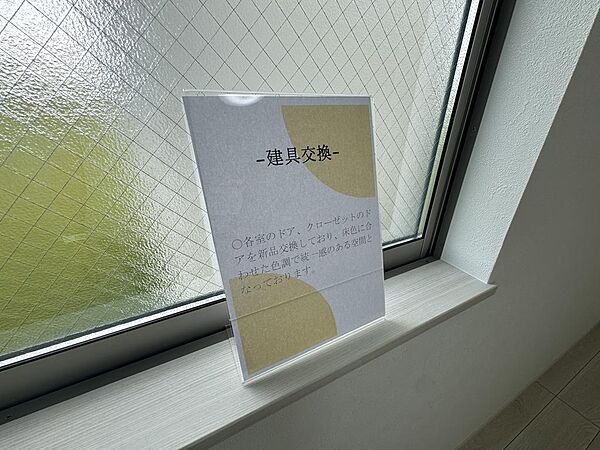 -建具交換-
○各室のドア、クローゼットのド
アを新品交換しており、床色に合
わせた色調で統一感のある空間と
なっております。